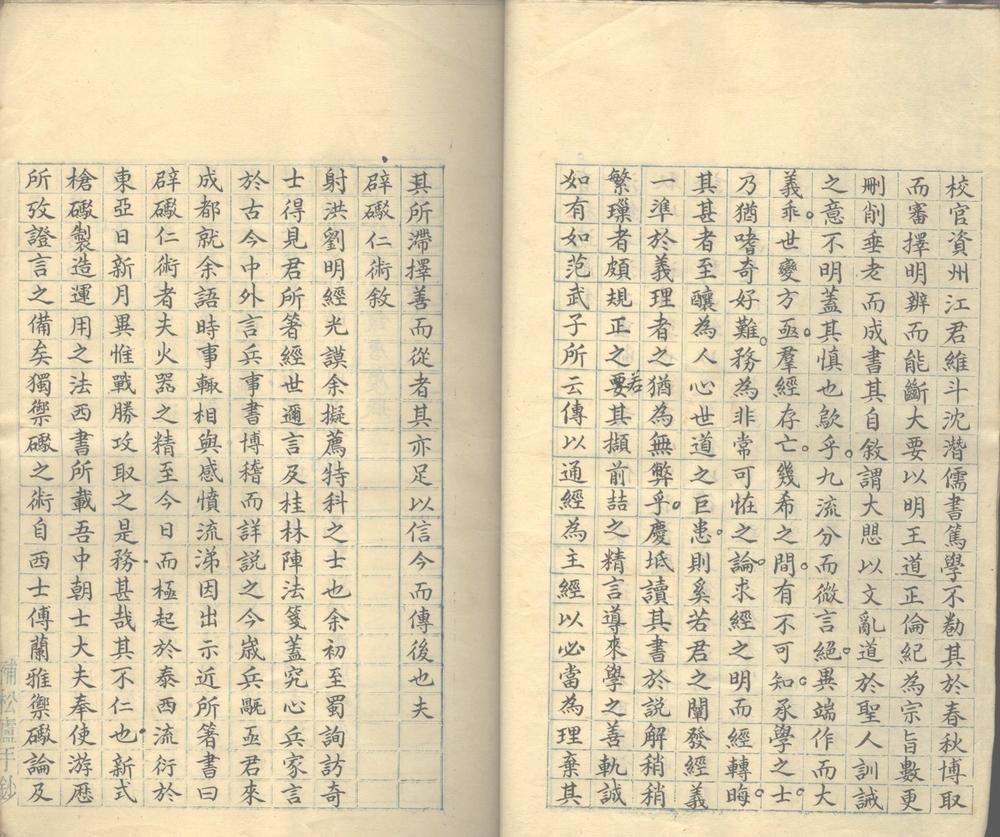 校官資州江君維斗沈潛儒書篤學不勌其於春秋博取
而審擇明辨而能斷大要以明王道正倫紀為宗旨數更
刪削垂老而成書其自敘謂大思以文亂道於聖人訓誡
之意不明蓋其慎也歟乎。九流分而微言絕。異端作而大
義乖。世變方亟。羣經存亡。幾希之間。有不可知。承學之士。
乃猶嗜奇好難。務為非常可恠之論。求經之明而經轉晦。
其甚者至釀為人心世道之巨患。則奚若君之闡發經義
一準於義理者之猶為無弊乎。慶坻讀其書於說解稍稍
繁瓅者頗規正之要若其擷前喆之精言導來學之善軌誠
如有如范武子所云傳以通經為主經以必當為理棄其
其所滯擇善而從者其亦足以信今而傳後也夫
辟礮仁術敘
射洪劉明經光謨余擬薦特科之士也余初至蜀詢訪奇
士得見君所箸經世邇言及桂林陣法箋蓋究心兵家言
於古今中外言兵事書博稽而詳說之今嵗兵戹亟君來
成都就余語時事輒相與感憤流涕因出示近所箸書曰
辟礮仁術者夫火器之精至今日而極起於泰西流衍於
東亞日新月異惟戰勝攻取之是務甚哉其不仁也新式
槍礮製造運用之法西書所載吾中朝士大夫奉使游歷
所攷證言之備矣獨禦礮之術自西士傅蘭雅禦礮論及
補松廬手鈔